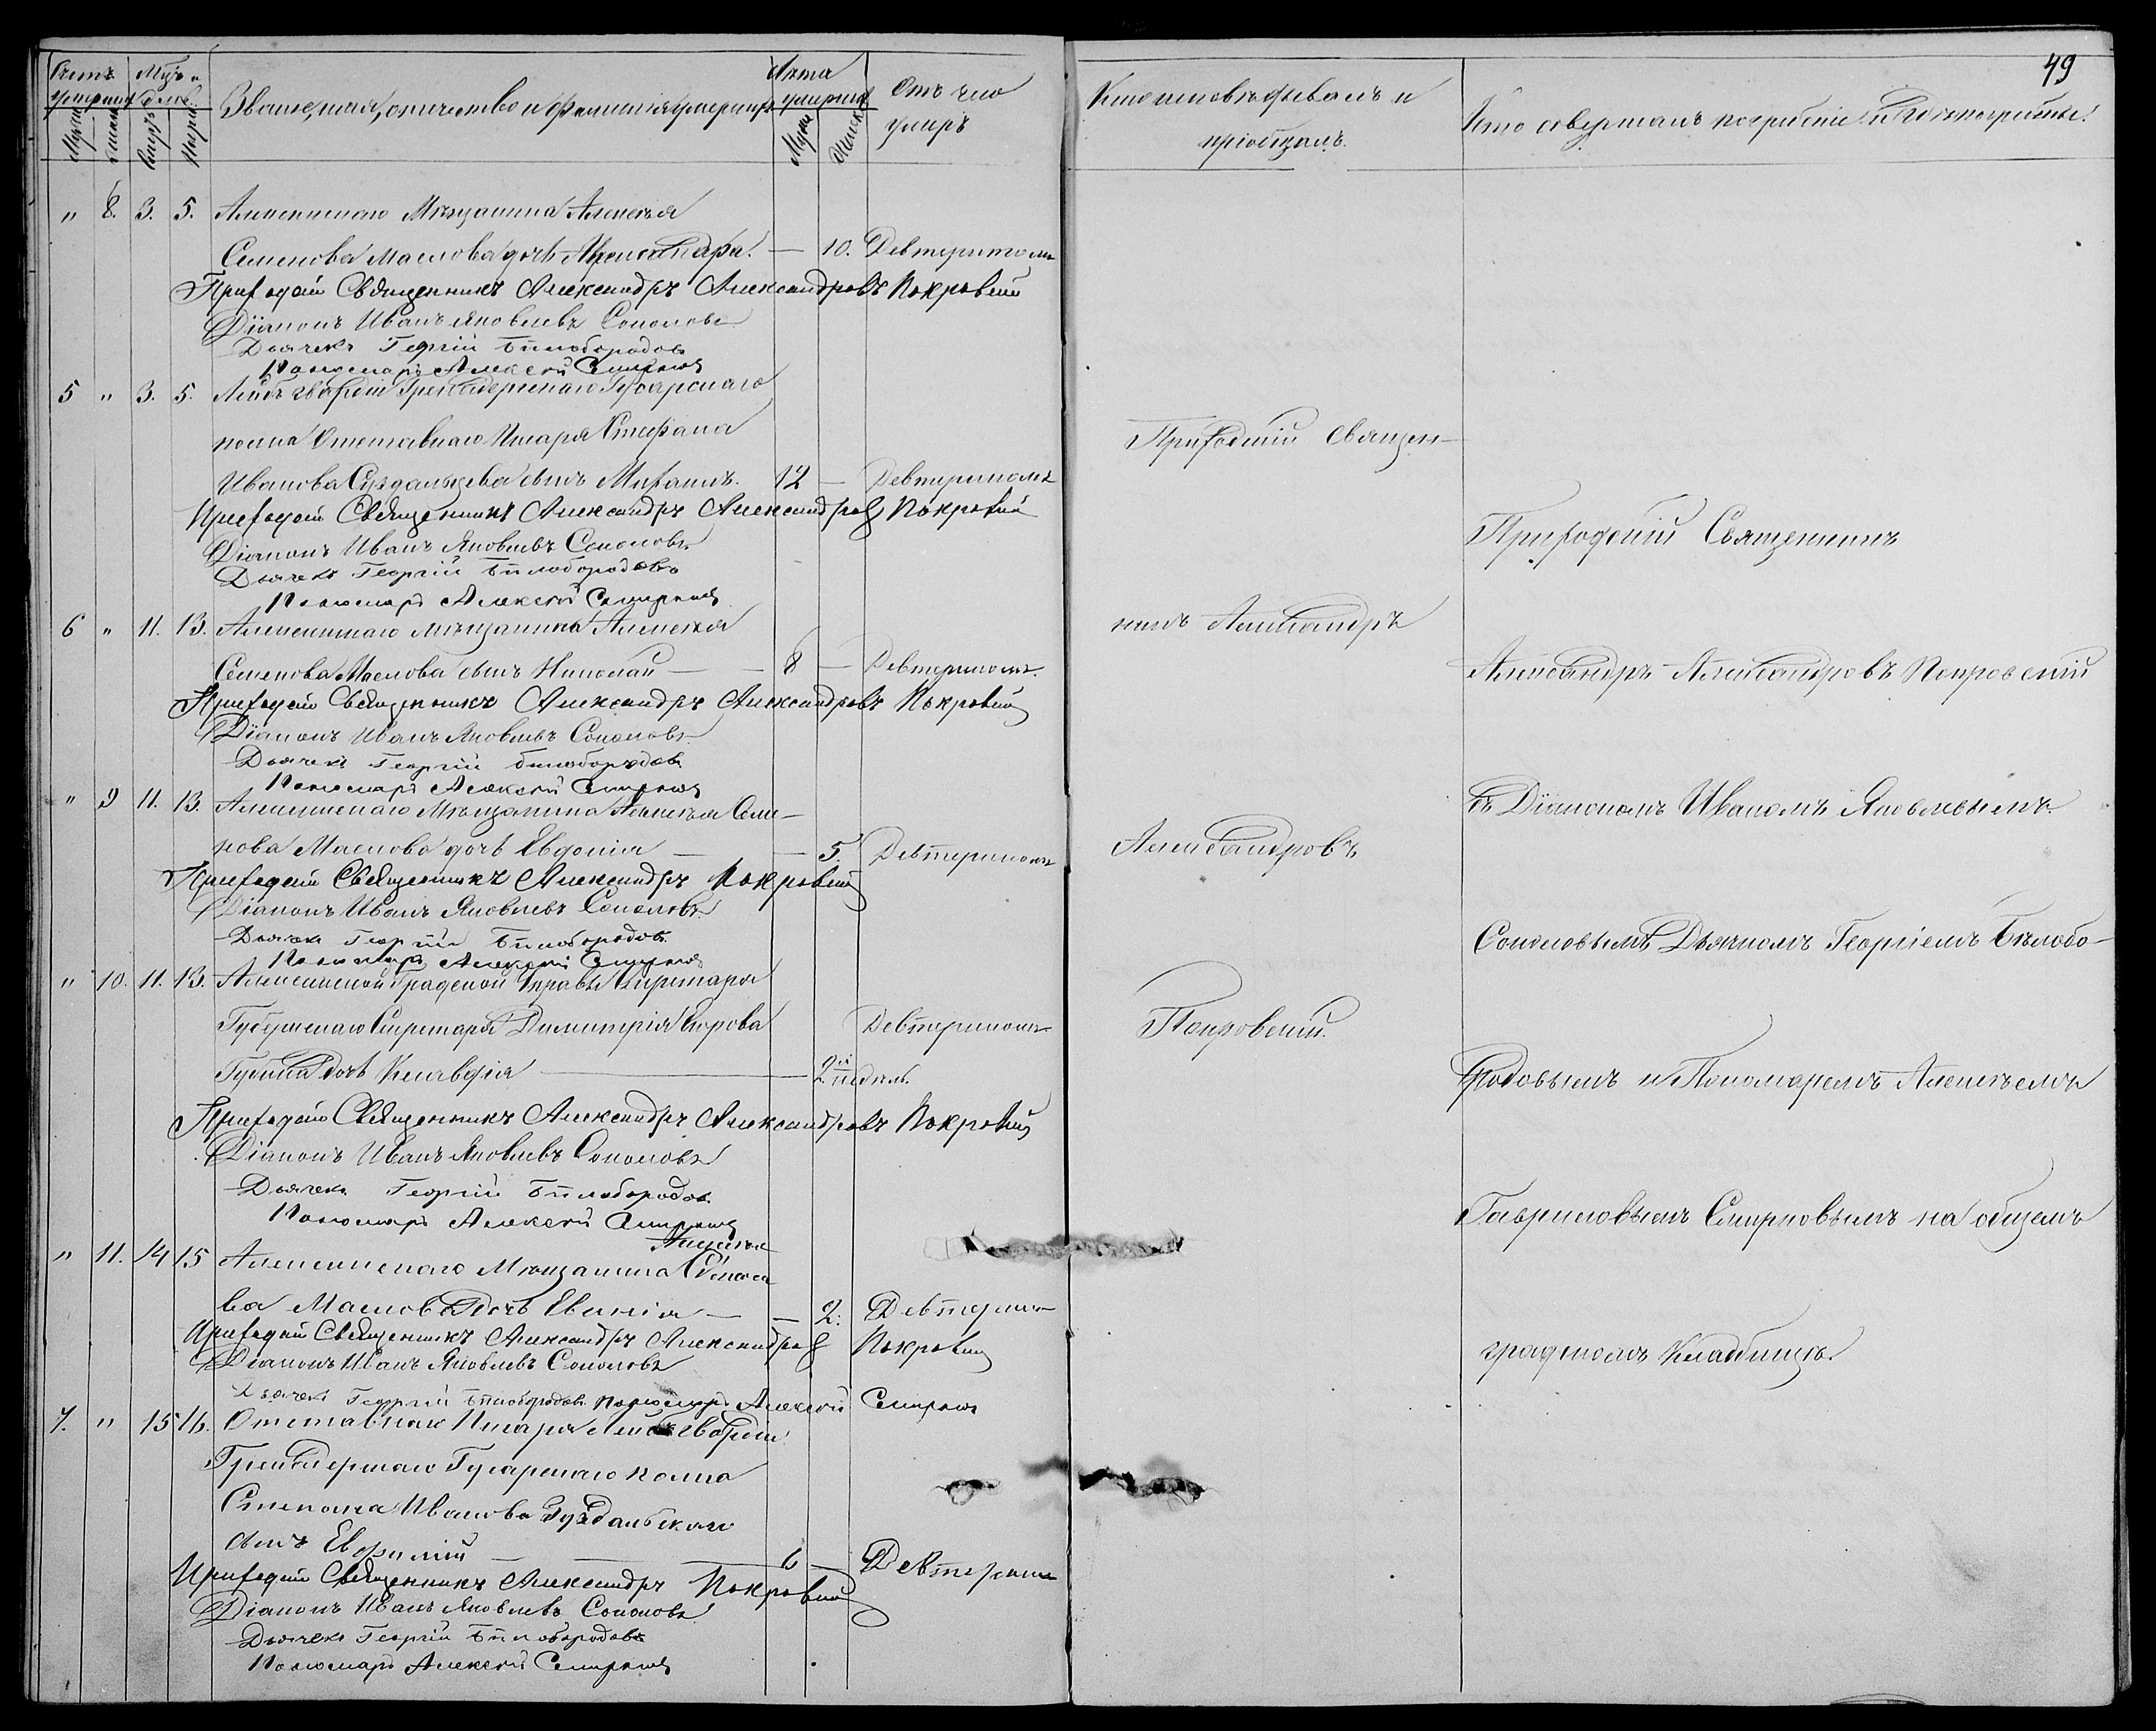 Счетъ умершихъ
Мужеска
Женска
Мѣс. и день
Смер.
Погр.
Званіе, имя, отчество и фамилія умершихъ
Лѣта умершаго
Мужеск
Женск
Отъ чего умеръ
" 8. 3. 5. Алексинскаго Мѣщанина Алексѣя
Семенова Маслова дочь Александра. — 10. Девтеритомъ
Приходскій Священникъ Александръ Александровъ Покровскій
Діаконъ Иванъ Яковлевъ Соколовъ
Дьячекъ Георгій Бѣлобородовъ
Пономарь Алексѣй Смирновъ
5 " 3. 5. Лейбъ гвардіи Гродненскаго Гусарскаго
полка Отставнаго Писаря Стефана
Иванова Суздальцева сынъ Михаилъ. 12 — Девтеритомъ
Приходскій Священникъ Александръ Александровъ Покровскій
Діаконъ Иванъ Яковлевъ Соколовъ
Дьячекъ Георгій Бѣлобородовъ
Пономарь Алексѣй Смирновъ
6 " 11. 13. Алексинскаго мѣщанина Алексѣя
Семенова Маслова сынъ Николай — 8 — Девтеритомъ.
Приходскій Священникъ Александръ Александровъ Покровскій
Діаконъ Иванъ Яковлевъ Соколовъ
Дьячекъ Георгій Бѣлобородовъ
Пономарь Алексѣй Смирновъ
" 9 11. 13. Алексинскаго Мѣщанина Алексѣя Семе-
нова Маслова дочь Евдокія — — 5. Девтеритомъ
Приходскій Священникъ Александръ Покровскій
Діаконъ Иванъ Яковлевъ Соколовъ
Дьячекъ Георгій Бѣлобородовъ
Пономарь Алексѣй Смирновъ
" 10. 11. 13. Алексинской Градской Управы Секретаря
Губернскаго Секретаря Димитрія Егорова Девтеритомъ
дочь Клавдія — 2хъ недѣль.
Приходскій Священникъ Александръ Александровъ Покровскій
Діаконъ Иванъ Яковлевъ Соколовъ
Дьячекъ Георгій Бѣлобородовъ
Пономарь Алексѣй Смирновъ
Алексѣя
" 11. 14 15 Алексинскаго Мѣщанина Семено
ва Маслова дочь — — 2. Девтерит
Приходскій Священникъ Александръ Александровъ Покровскій
Діаконъ Иванъ Яковлевъ Соколовъ
Дьячекъ Георгій Бѣлобородовъ Пономарь Алексѣй Смирновъ
7. " 15 16. Отставнаго Писаря Лейбъ гвардіи
Гродненскаго Гусарскаго полка
Степана Иванова Суздальскаго
сынъ Евфимій — 6 — Девтерит
Приходскій Священникъ Александръ Покровскій
Діаконъ Иванъ Яковлевъ Соколовъ
Дьячекъ Георгій Бѣлобородовъ
Пономарь Алексѣй Смирновъ
49
Кто исповѣдывалъ и
пріобщалъ.
Кто совершалъ погребеніе и гдѣ погребены.
Приходскій Священ-
никъ Александръ
Александровъ
Покровскій.
Приходскій Священникъ
Александръ Александровъ Покровскій
съ Діакономъ Иваномъ Яковлевымъ
Соколовымъ Дьячкомъ Георгіемъ Бѣлобо-
родовымъ и Пономаремъ Алексѣемъ
Гавриловымъ Смирновымъ на общемъ
градскомъ Кладбищѣ.